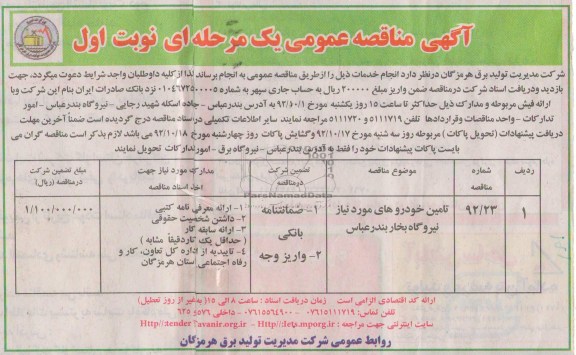 آگهی مناقصه عمومی یک مرحله ای نوبت اول
شرکت مدیریت تولید برق هرمزگان درنظر دارد انجام خدمات ذیل را ازطریق مناقصه عمومی به انجام برساند لذا از کلیه داوطلبان واجد شرایط دعوت میگردد، جهت
بازدید ودریافت اسناد شرکت درمناقصه ضمن واریز مبلغ ۲۰۰۰۰۰ ریال به حساب جاری سپهر به شماره ۰۱۰۴۶۷۲۵۰۰۰۰۵ نزد بانک صادرات ایران بنام این شرکت وبا
ارائه فیش مربوطه و مدارک ذیل حداکثر تا ساعت ۱۵ روز یکشنبه مورخ ۹۲/۱۰/۱ به آدرس بندرعباس - جاده اسکله شهید رجایی - نیروگاه بندرعباس - امور
تدارکات - واحد مناقصات وقراردادها تلفن ۵۱۱۱۷۱۹ و ۵۱۱۱۷۲۰ مراجعه نمایند سایر اطلاعات تکمیلی دراسناد مناقصه درج گردیده است ضمناً آخرین مهلت
دریافت پیشنهادات (تحویل پاکات) مربوطه روز سه شنبه مورخ ۹۲/۱۰/۱۷ وگشایش پاکات روز چهارشنبه مورخ ۹۲/۱۰/۱۸ می باشد لازم بذکر است مناقصه گران می
بایست پاکات پیشنهادات خود را فقط به آدرس بندرعباس - نیروگاه برق - امور تدارکات تحویل نمایند
ردیف شماره مناقصه موضوع مناقصه تضمین شرکت درمناقصه مدارک مورد نیاز جهت اخذ اسناد مناقصه مبلغ تضمین شرکت درمناقصه (ریال)
۱ ۹۲/۲۳ تامین خودرو های مورد نیاز ۱- ضمانتنامه ۱- ارائه معرفی نامه کتبی ۱/۱۰۰/۰۰۰/۰۰۰
نیروگاه بخار بندرعباس بانکی ۲- داشتن شخصیت حقوقی
۲- واریز وجه ۳- ارائه سابقه کار
(حداقل یک قرارداد مشابه)
۴- تاییدیه از اداره کل تعاون، کار و
رفاه اجتماعی استان هرمزگان
ParsNamadData
ارائه کد اقتصادی الزامی است زمان دریافت اسناد : ساعت ۸ الی ۱۵ (به غیر از روز تعطیل)
تلفن تماس: ۰۷۶۱۵۱۱۱۷۱۹ - ۰۷۶۱۵۵۶۴۹۰۰ - داخلی ۵۷۶ و ۶۲۵
سایت اینترنتی جهت مراجعه : Http//iets.mporg.ir - Http//tender.tavanir.org.ir
روابط عمومی شرکت مدیریت تولید برق هرمزگان